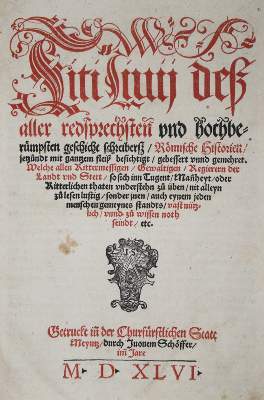 Titi Liuij deß
aller redsprechsten vnd hochbe-
rümpsten geschicht schreiberß / Römische Historien /
jetzundt mit gantzem fleiß besichtigt / gebessert vnnd gemehret.
Welche allen Rittermessigen / Gewaltigen / Regierern der
Landt vnd Stett / so sich im Tugent / Mañheyt / oder
Ritterlichen thaten vnderstehn zů üben / nit alleyn
zů lesen lustig / sonder jnen / auch eynem jeden
menschen gemeynes standts / vast nütz-
lich / vnnd zů wissen noth
seindt / etc.
Getruckt in der Churfürstlichen Statt
Meyntz / durch Juonem Schöffer /
im Jare
M D XLVI